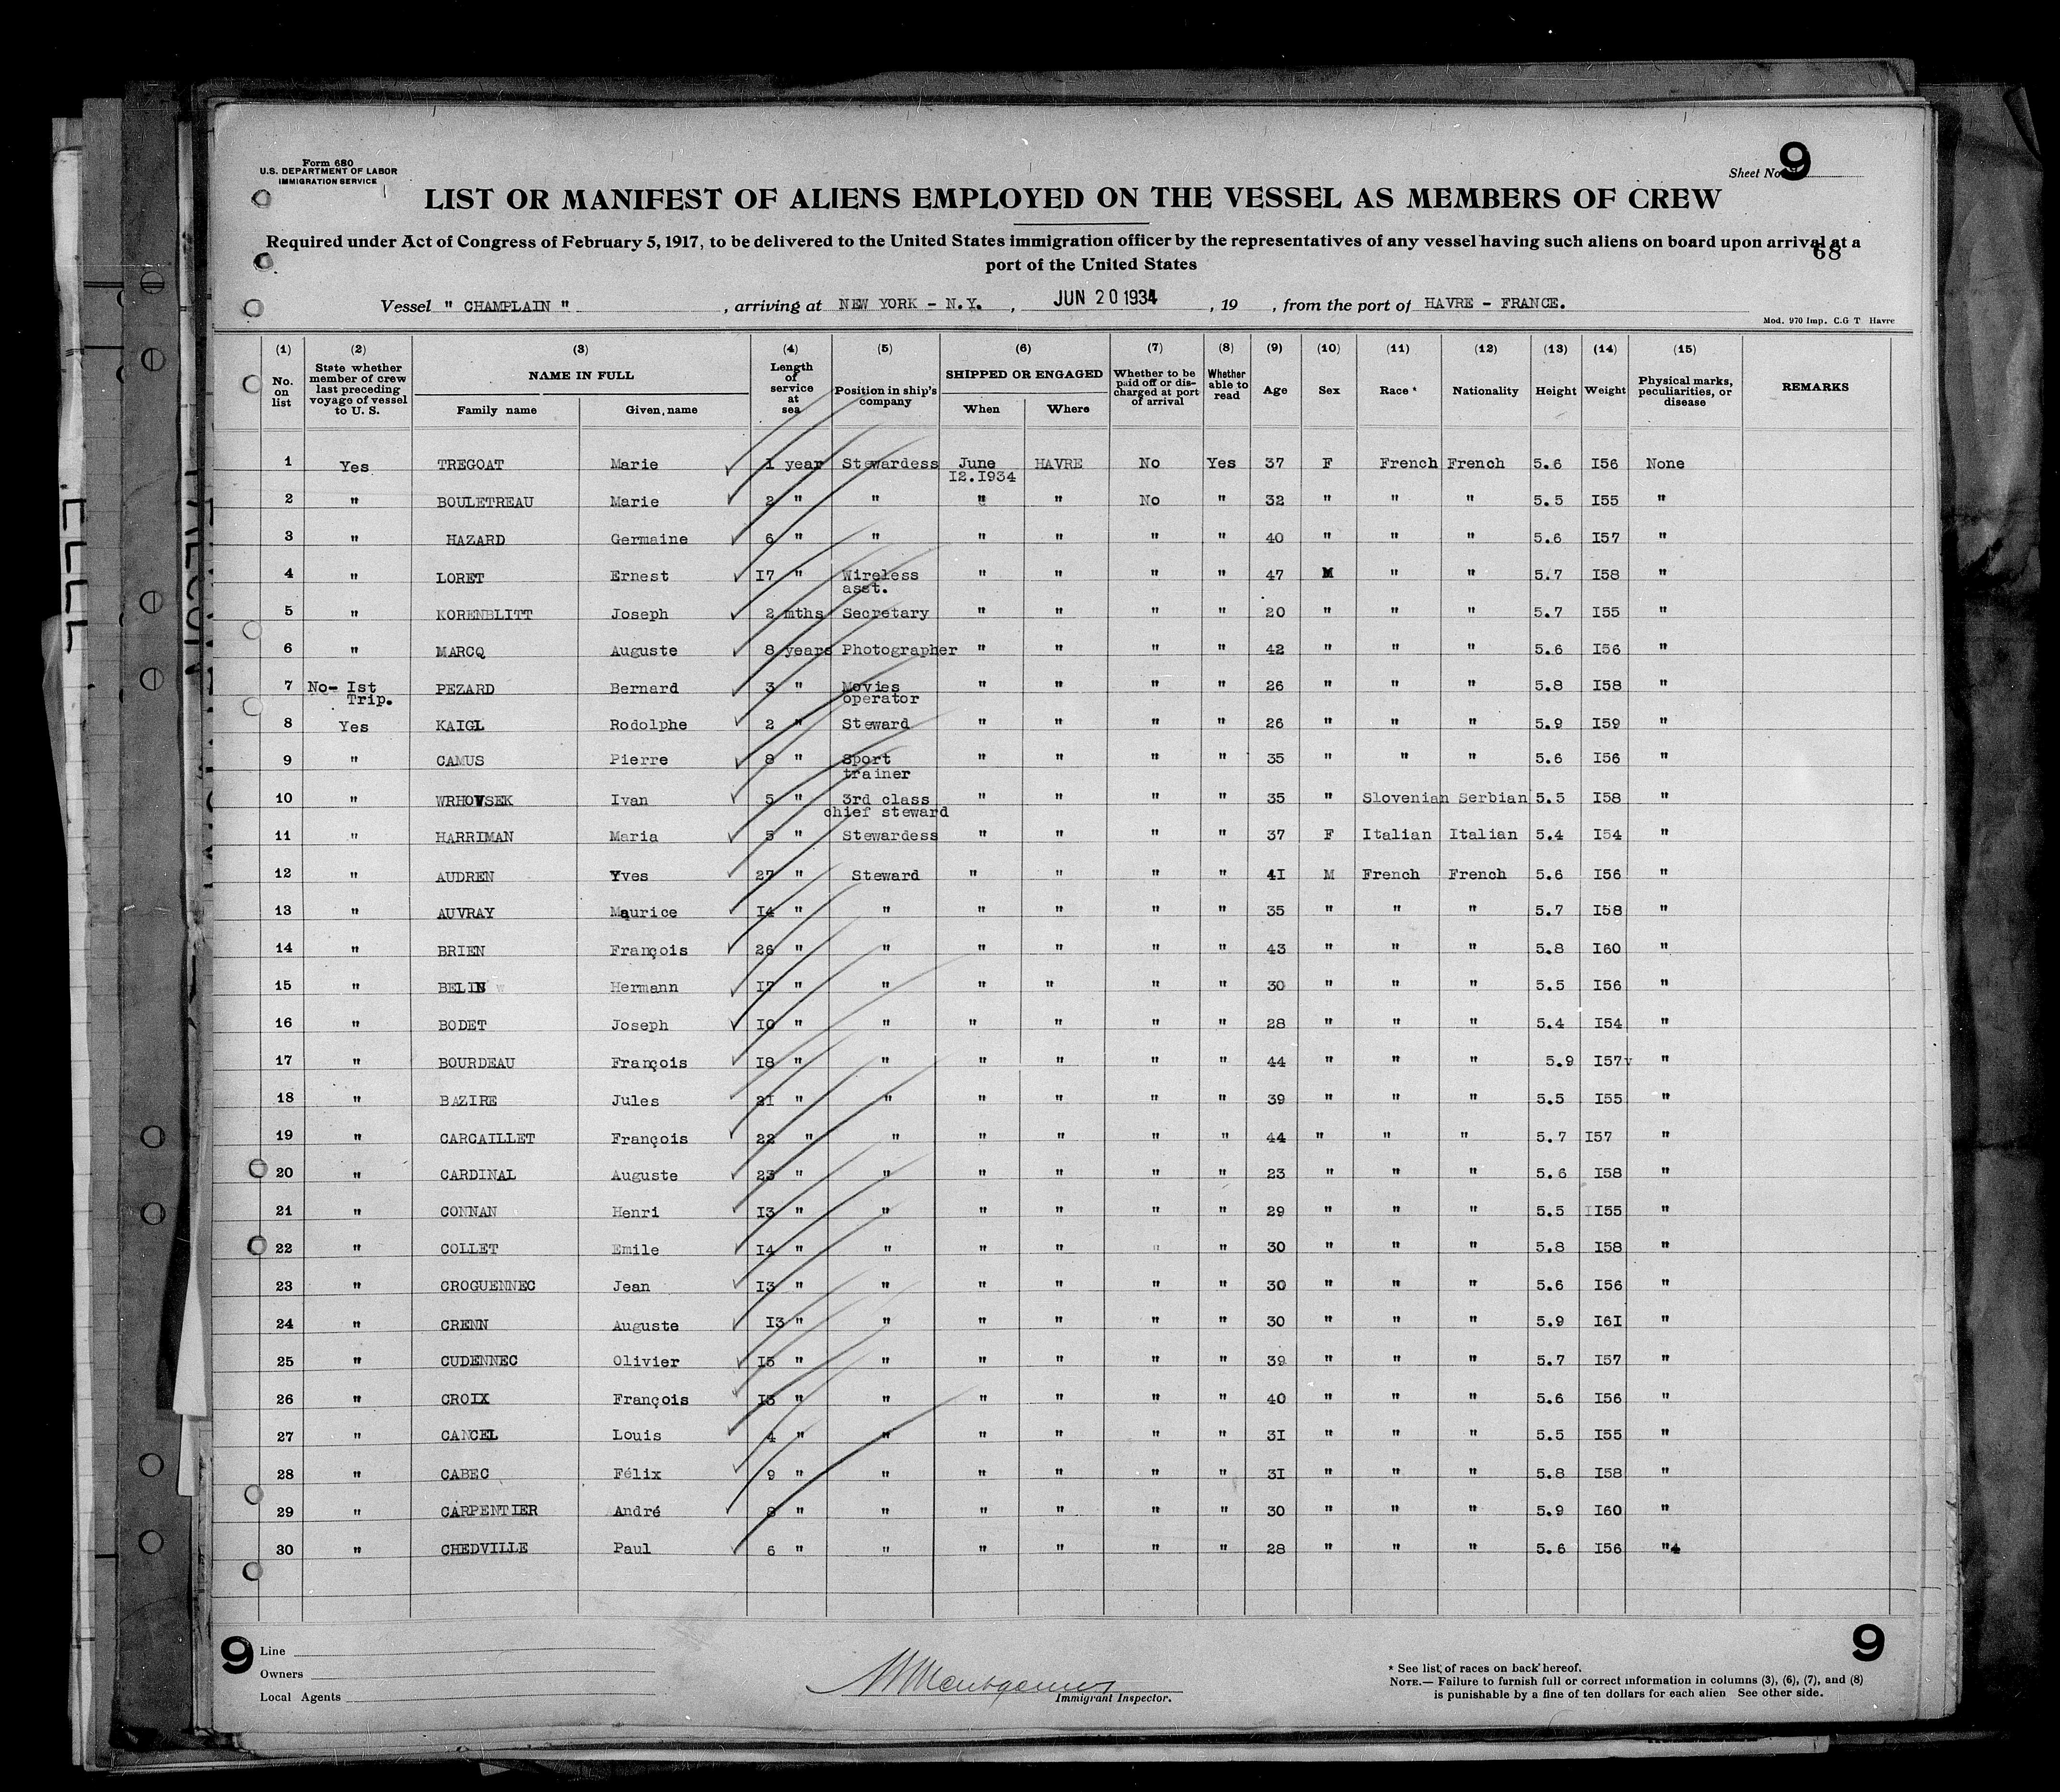 Form 680
U.S. DEPARTMENT OF LABOR
IMMIGRATION SERVICE
Sheet No. 9
LIST OR MANIFEST OF ALIENS EMPLOYED ON THE VESSEL AS MEMBERS OF CREW
Required under Act of Congress of February 5, 1917, to be delivered to the United States immigration officer by the representatives of any vessel having such aliens on board upon arrival at a
port of the United States
68
Vessel " CHAMPLAIN " , arriving at NEW YORK - N.Y. , JUN 20 1934 , 19 , from the port of HAVRE - FRANCE.
Mod. 970 Imp. C.G T Havre
(1) (2) (3) (4) (5) (6) (7) (8) (9) (10) (11) (12) (13) (14) (15)
No. on list State whether member of crew last preceding voyage of vessel to U. S. NAME IN FULL Family name Given name Length of service at sea Position in ship's company SHIPPED OR ENGAGED When Where Whether to be paid off or discharged at port of arrival Whether able to read Age Sex Race * Nationality Height Weight Physical marks, peculiarities, or disease REMARKS
1 Yes TREGOAT Marie 1 year Stewardess June I2.I934 HAVRE No Yes 37 F French French 5.6 I56 None
2 " BOULETREAU Marie 2 " " " " No " 32 " " " 5.5 I55 "
3 " HAZARD Germaine 6 " " " " " " 40 " " " 5.6 I57 "
4 " LORET Ernest I7 " Wireless asst. " " " " 47 M " " 5.7 I58 "
5 " KORENBLITT Joseph 2 mths Secretary " " " " 20 " " " 5.7 I55 "
6 " MARCQ Auguste 8 years Photographer " " " " 42 " " " 5.6 I56 "
7 No- Ist Trip. PEZARD Bernard 3 " Movies operator " " " " 26 " " " 5.8 I58 "
8 Yes KAIGL Rodolphe 2 " Steward " " " " 26 " " " 5.9 I59 "
9 " CAMUS Pierre 8 " Sport trainer " " " " 35 " " " 5.6 I56 "
10 " WRHOVSEK Ivan 5 " 3rd class chief steward " " " " 35 " Slovenian Serbian 5.5 I58 "
11 " HARRIMAN Maria 5 " Stewardess " " " " 37 F Italian Italian 5.4 I54 "
12 " AUDREN Yves 27 " Steward " " " " 4I M French French 5.6 I56 "
13 " AUVRAY Maurice I4 " " " " " " 35 " " " 5.7 I58 "
14 " BRIEN François 26 " " " " " " 43 " " " 5.8 I60 "
15 " BELIN Hermann I7 " " " " " " 30 " " " 5.5 I56 "
16 " BODET Joseph I0 " " " " " " 28 " " " 5.4 I54 "
17 " BOURDEAU François I8 " " " " " " 44 " " " 5.9 I57 "
18 " BAZIRE Jules 2I " " " " " " 39 " " " 5.5 I55 "
19 " CARCAILLET François 22 " " " " " " 44 " " " 5.7 I57 "
20 " CARDINAL Auguste 23 " " " " " " 23 " " " 5.6 I58 "
21 " CONNAN Henri I3 " " " " " " 29 " " " 5.5 I55 "
22 " COLLET Emile I4 " " " " " " 30 " " " 5.8 I58 "
23 " CROGUENNEC Jean I3 " " " " " " 30 " " " 5.6 I56 "
24 " CRENN Auguste I3 " " " " " " 30 " " " 5.9 I6I "
25 " CUDENNEC Olivier I5 " " " " " " 39 " " " 5.7 I57 "
26 " CROIX François I3 " " " " " " 40 " " " 5.6 I56 "
27 " CANCEL Louis 4 " " " " " " 3I " " " 5.5 I55 "
28 " CABEC Félix 9 " " " " " " 3I " " " 5.8 I58 "
29 " CARPENTIER André 8 " " " " " " 30 " " " 5.9 I60 "
30 " CHEDVILLE Paul 6 " " " " " " 28 " " " 5.6 I56 "
9 Line
Owners
Local Agents
Montgomery
Immigrant Inspector.
* See list of races on back hereof.
NOTE.— Failure to furnish full or correct information in columns (3), (6), (7), and (8)
is punishable by a fine of ten dollars for each alien See other side.
9